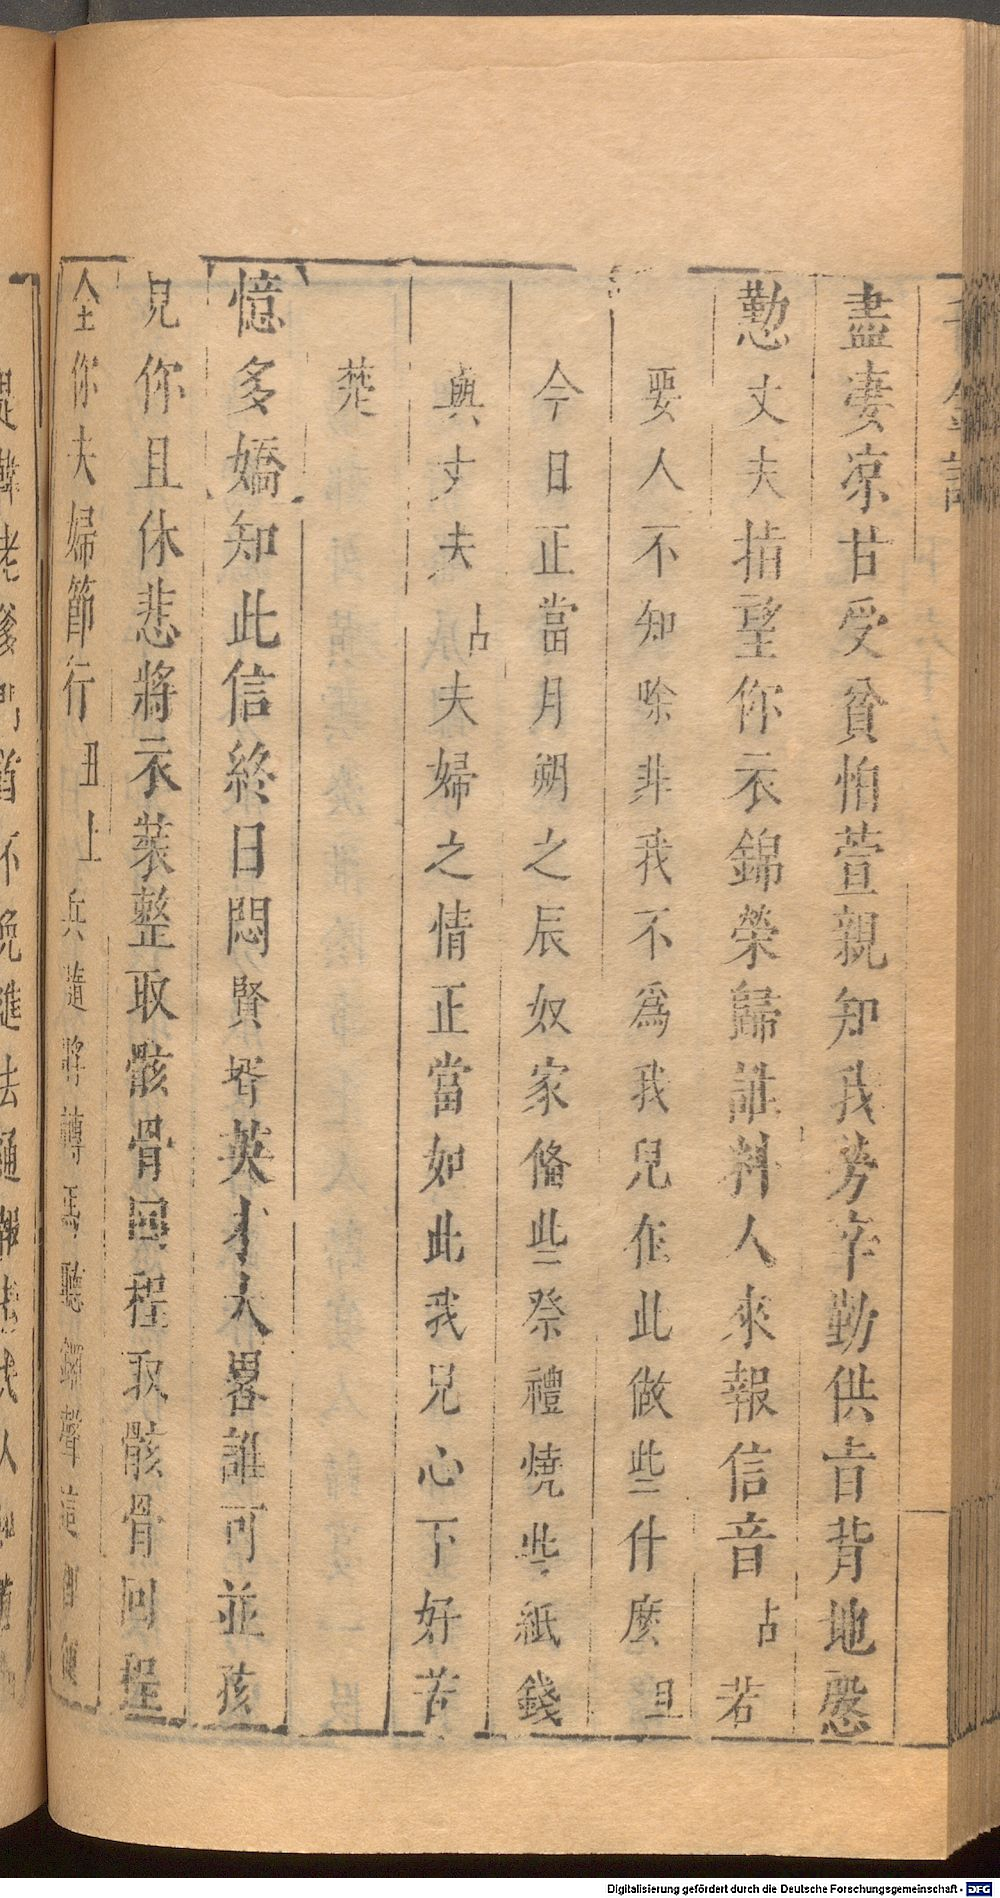 盡妻凉甘受貧怕萱親知我勞辛勤供旨背地慇
懃丈夫指望你衣錦榮歸誰料人來報信音占若
要人不知除非我不爲我兒在此做些什麼旦
今日正當月朔之辰奴家俻些祭禮燒些紙錢
與丈夫占夫婦之情正當如此我兒心下好苦
楚
憶多嬌知此信終日悶賢壻英才大畧誰可並孩
兒你且休悲將衣裝整取骸骨囘程取骸骨回程
全你夫婦節行丑上兵隨將轉馬聽鑼聲這
Digitalisierung gefördert durch die Deutsche Forschungsgemeinschaft - DFG